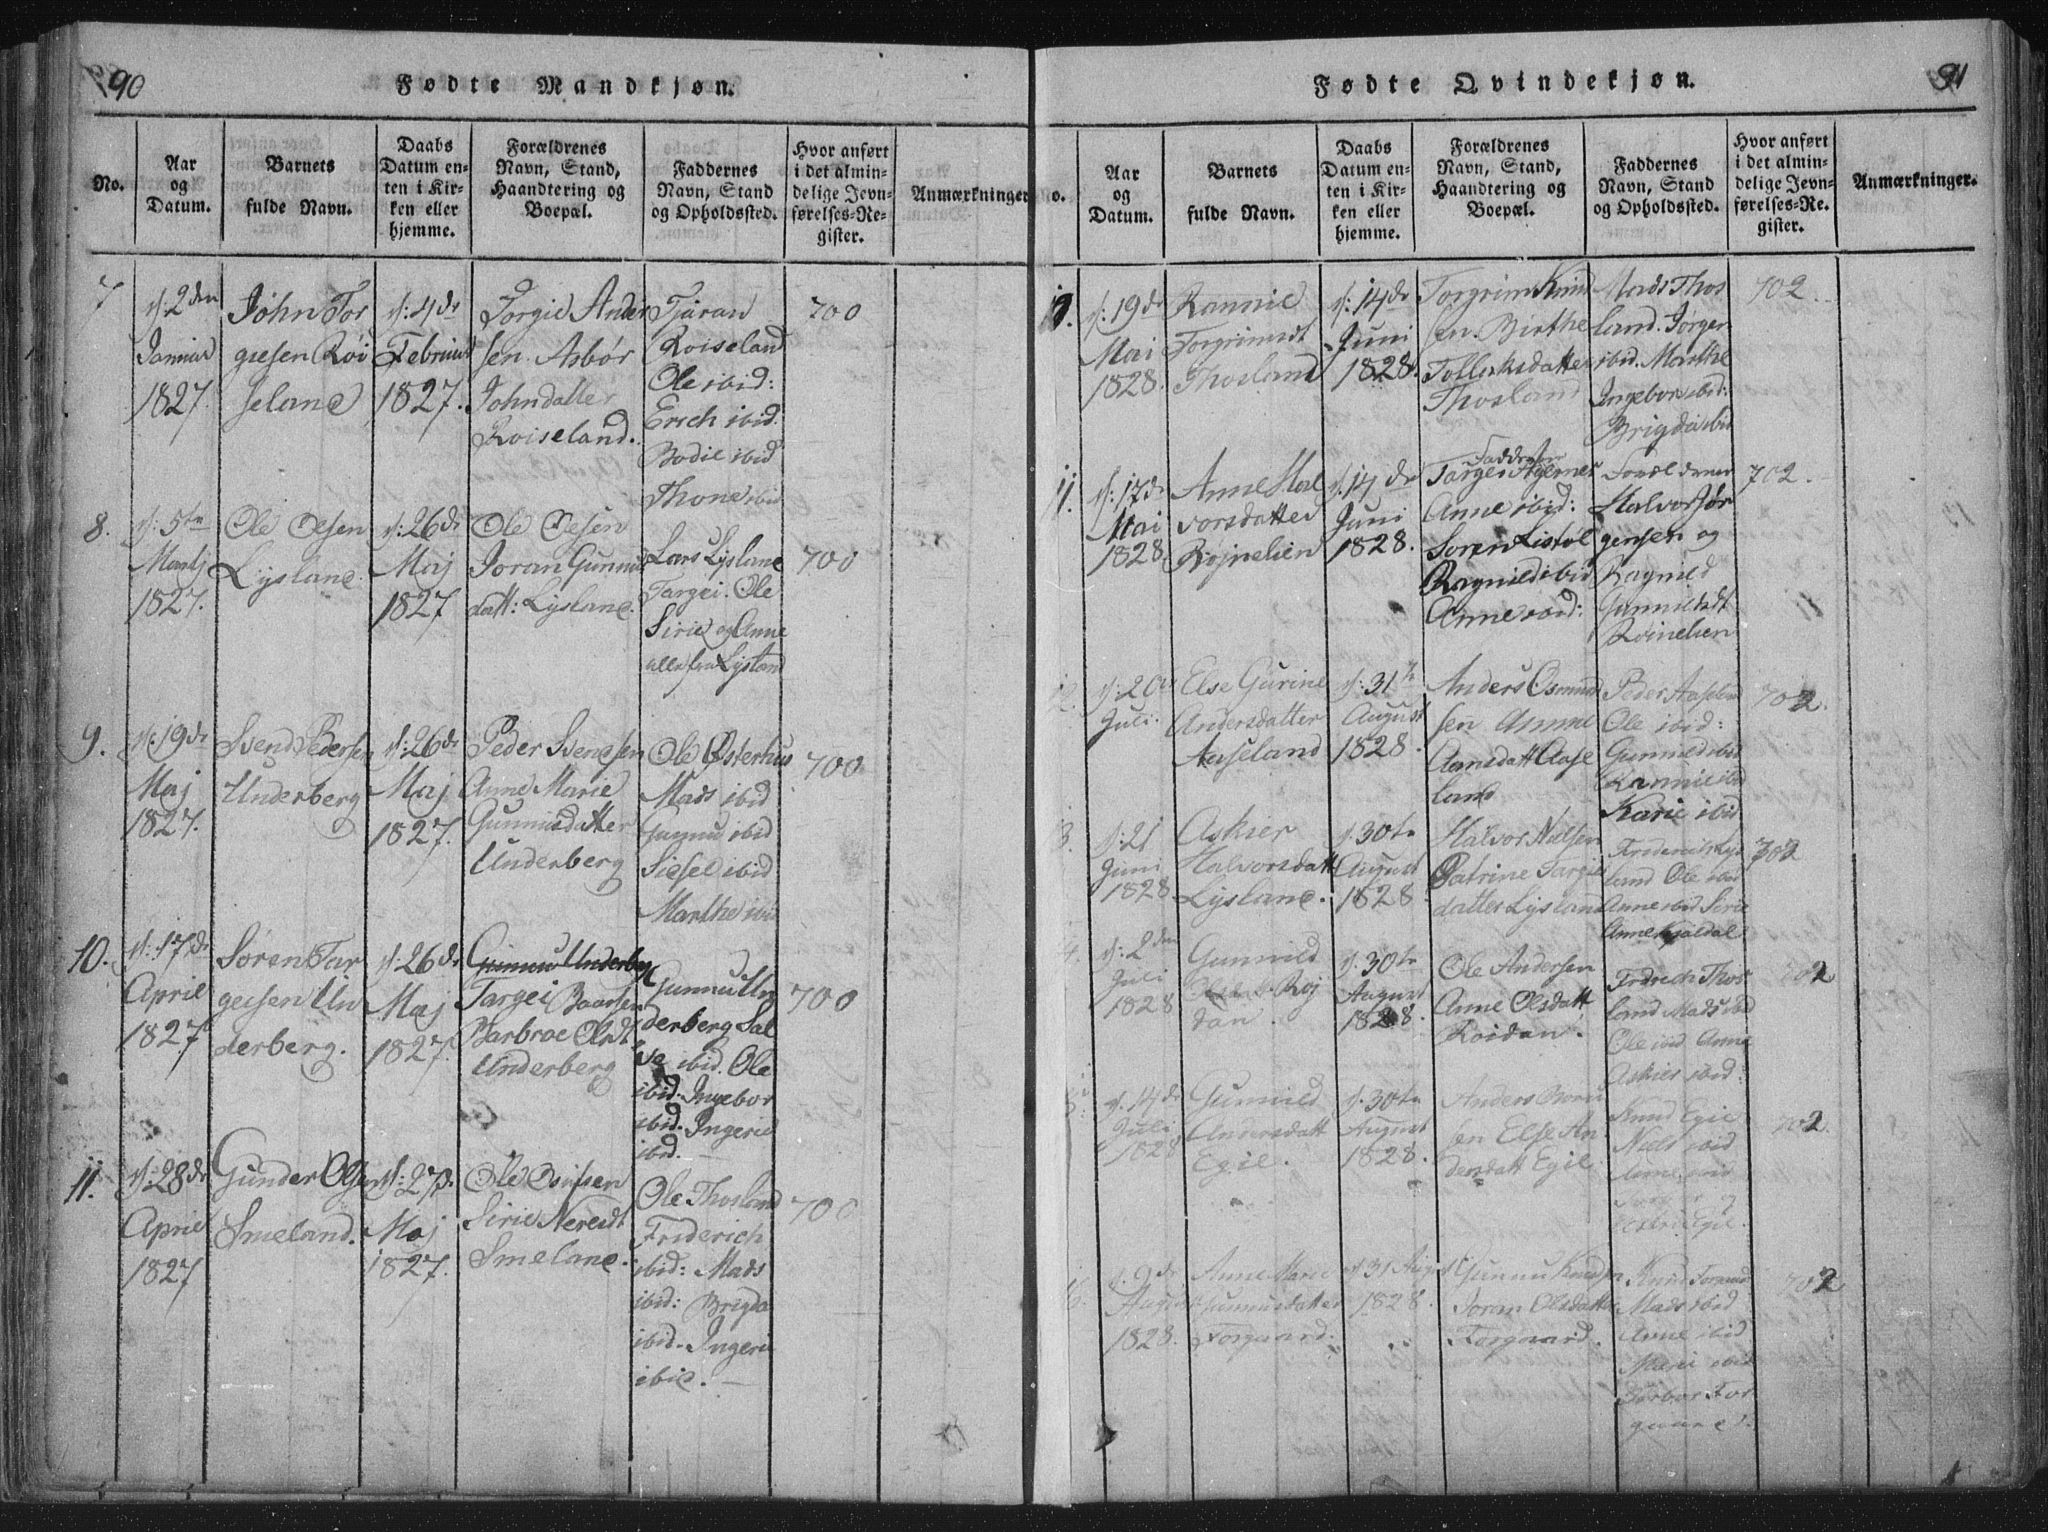 90
Fødte Mandkjøn.
No.
Aar
og
Datum.
Barnets
fulde Navn.
Daabs
Datum en-
ten i Kir-
ken eller
hjemme.
Forældrenes
Navn, Stand,
Haandtering og
Boepæl.
Faddernes
Navn, Stand
og Opholdssted.
Hvor anført
i det almin-
delige Jevn-
førelses-Re-
gister.
Anmærkninger
7
d: 2den
Januar
1827.
John Tor
giesen Röi
seland
d: 4de
Februar
1827.
Torgie Ander
sen. Asbör
Johndatter
Roiseland.
Tjaran
Roiseland
Ole ibid:
Ersch ibid.
Bodil ibid
Thone ibid
700
8.
d: 5te
Martj
1827.
Ole Olsen
Lysland.
d: 26de
Maj
1827
Ole Olesen
Joran Gunnus
datt: Lysland.
Lars Lysland
Targei. Ole
Sirie og Anne
alle fra Lysland
700
9.
d: 19de
Maj
1827.
Svend Pedersen
Underberg
d: 26de
Maj
1827.
Peder Svensen
Anne Marie
Gunnusdatter
Underberg
Ole Østerhus
Mads ibid
Gunnu ibid
Sissel ibid
Marthe ibid
700
10.
d: 17de
April
1827
Søren Tar
geisen Un
derberg.
d: 26de
Maj
1827.
Gunnu Underberg
Targei Baarsen
Barbroe Olsdt
Underberg
Gunnu Un
derberg Sal
ve ibid. Ole
ibid. Ingebor
ibid. Ingerid
ibid.
700
11.
d: 28de
April
1827
Gunder Olsen
Smeland.
d: 27.
Maj
1827.
Ole
Sirie Neresdt
Smeland.
Ole Thosland
Friderich
ibid: Mads
ibid: Brigda
ibid. Ingeri
ibid.
700
91
Fødte Qvindekjøn.
o.
Aar
og
Datum.
Barnets
fulde Navn.
Daabs
Datum en-
ten i Kir-
ken eller
hjemme.
Forældrenes
Navn, Stand,
Haandtering og
Boepæl.
Faddernes
Navn, Stand
og Opholdssted.
Hvor anført
i det almin-
delige Jevn-
førelses-Re.
gister.
Anmærkninger.
10.
d: 19de
Mai
1828.
Rannie
Torgrimsdt
Thosland
d: 14de
Juni
1828.
Torgrim Knud
sen. Birthe
Tollaksdatter
Thosland
Mads Thos
land. Jørgen
ibid. Marthe
Ingebor ibid:
Brigda ibid
702
11.
d: 17de
Mai
1828
Anne Hal
vorsdatter
Røjnelien
d: 14de
Juni
1828.
Faddrerne
Targei
Anne ibid:
Soren Listøl
Ragnild ibid
Anne ibid:
Forældrener
Halvor Jör
gensen og
Ragnild
Gunnildsdt
Röinelien
702
12.
d: 20de
Juli.
Else Gurine
Andersdatter
Aaseland
d: 31te
August
1828.
Anders Osmund
sen Anne
Aansdatt Aase
land
Peder Aaseland
Ole ibid:
Gunnild ibid
Rannie ibid
Karie ibid
702
3.
d: 21
Juni
1828
Askier
Halvorsdatt
Lysland.
d. 30te
August
1828.
Halvor Nielsen
Patrine Targies
datter Lysland
Frederich Lys
land Ole ibid
Anne ibid Sirie
702
4.
d: 2den
Juli
1828
Gunnild
Olsd. Roj
dan.
d. 30te
August
1828.
Ole Andersen
Anne Olsdatt
Roidan.
Fredrech Thos
land Mads ibid
Ole ibid Anne
Askier ibid:
702
5.
d: 14de
Juli
1828
Gunnild
Andersdatt
Egil.
d. 30te
August
1828.
Anders
sen Else An
dersdatt Egil
Knud Egie
Niels ibid
Anne ibid
Egil.
702
6.
d. 9de
August
1828.
Anne Marie
Gunnusdatter
Forgaard.
d 31 August
1828.
Gunnu Knudsen
Joran Olsdatter
Forgaard.
Knud Forgaard
Mads ibid
Anne ibid
Marei ibid
Barbor For
gaard.
702